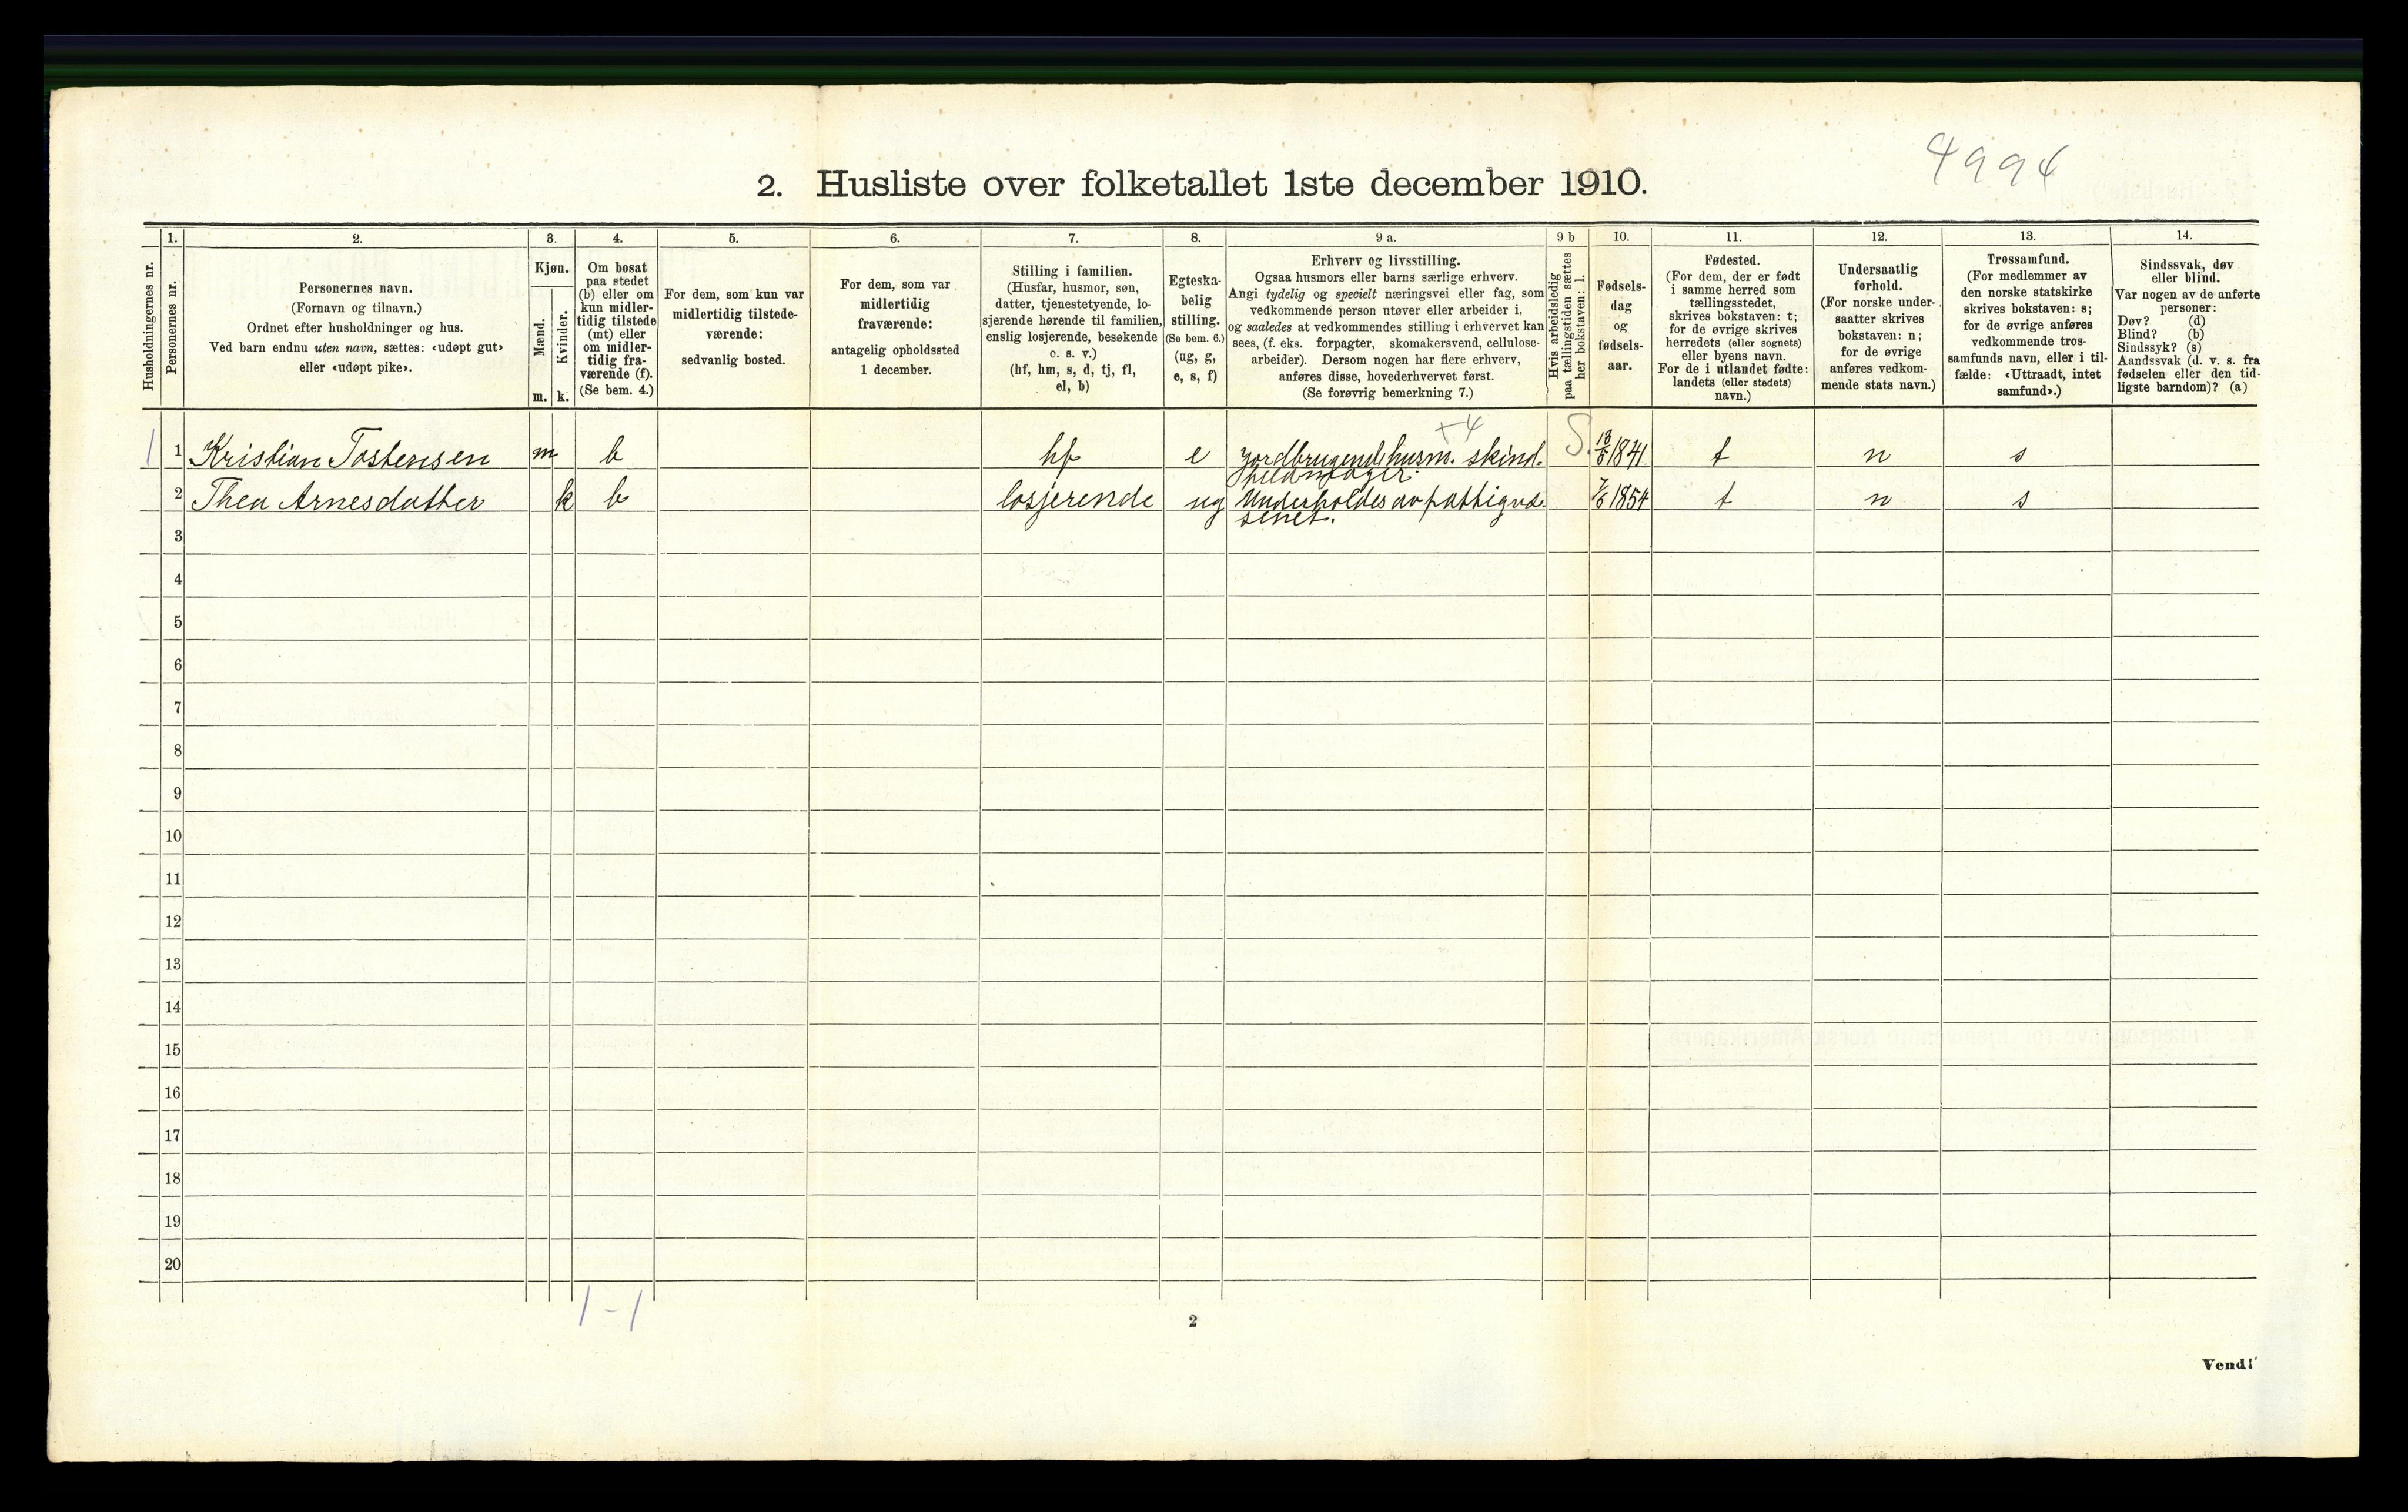 4994
2. Husliste over folketallet 1ste december 1910.
Husholdningernes nr.
1.
Personernes nr.
2.
Personernes navn.
(Fornavn og tilnavn.)
Ordnet efter husholdninger og hus.
Ved barn endnu uten navn, sættes: «udøpt gut»
eller «udøpt pike».
3.
Kjøn.
Mænd.
Kvinder.
m. k.
4.
Om bosat
paa stedet
(b) eller om
kun midler-
tidig tilstede
(mt) eller
om midler-
tidig fra-
værende (f).
(Se bem. 4.)
5.
For dem, som kun var
midlertidig tilstede-
værende:
sedvanlig bosted.
6.
For dem, som var
midlertidig
fraværende:
antagelig opholdssted
1 december.
7.
Stilling i familien.
(Husfar, husmor, søn,
datter, tjenestetyende, lo-
sjerende hørende til familien,
enslig losjerende, besøkende
o. s. v.)
(hf, hm, s, d, tj, fl,
el, b)
8.
Egteska-
belig
stilling.
(Se bem. 6.)
(ug, g,
e, s, f)
9 a.
Erhverv og livsstilling.
Ogsaa husmors eller barns særlige erhverv.
Angi tydelig og specielt næringsvei eller fag, som
vedkommende person utøver eller arbeider i,
og saaledes at vedkommendes stilling i erhvervet kan
sees, (f. eks. forpagter, skomakersvend, cellulose-
arbeider). Dersom nogen har flere erhverv,
anføres disse, hovederhvervet først.
(Se forøvrig bemerkning 7.)
9 b
Hvis arbeidsledig
paa tællingstiden sættes
her bokstaven: l.
10.
Fødsels-
dag
og
fødsels-
aar.
11.
Fødested.
(For dem, der er født
i samme herred som
tællingsstedet,
skrives bokstaven: t;
for de øvrige skrives
herredets (eller sognets)
eller byens navn.
For de i utlandet fødte:
landets (eller stedets)
navn.)
12.
Undersaatlig
forhold.
(For norske under-
saatter skrives
bokstaven: n;
for de øvrige
anføres vedkom-
mende stats navn.)
13.
Trossamfund.
(For medlemmer av
den norske statskirke
skrives bokstaven: s;
for de øvrige anføres
vedkommende tros-
samfunds navn, eller i til-
fælde: «Uttraadt, intet
samfund».)
14.
Sindssvak, døv
eller blind.
Var nogen av de anførte
personer:
Døv? (d)
Blind? (b)
Sindssyk? (s)
Aandssvak (d. v. s. fra
fødselen eller den tid-
ligste barndom)? (a)
+4
1 1 Kristian Tostensen m b hf e Jordbrugend. husm. skind- S. 1841 t n s
feldmager.
2 Thea Arnesdatter k b losjerende ug Underholdes av fattigvæ- 7/6 1854 t n s
senet.
3
4
5
6
7
8
9
10
11
12
13
14
15
16
17
18
19
20
1 - 1
2
Vend!